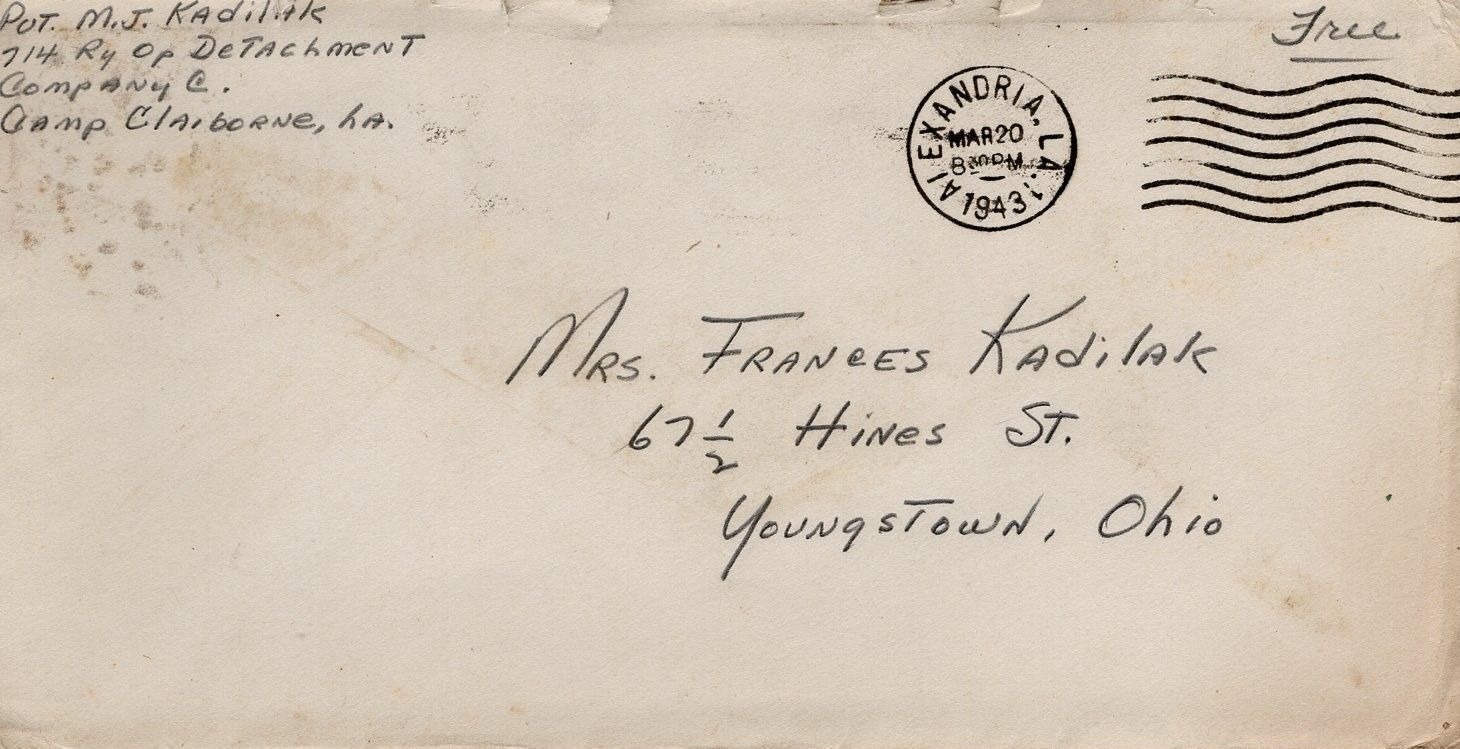 Pvt. M.J. Kadilak
714 Ry Op Detachment
Company C.
Camp Claiborne, La.
Free
ALEXANDRIA, LA. 1
MAR 20
8 30 PM
1943
Mrs. Frances Kadilak
67 1/2 Hines St.
Youngstown, Ohio